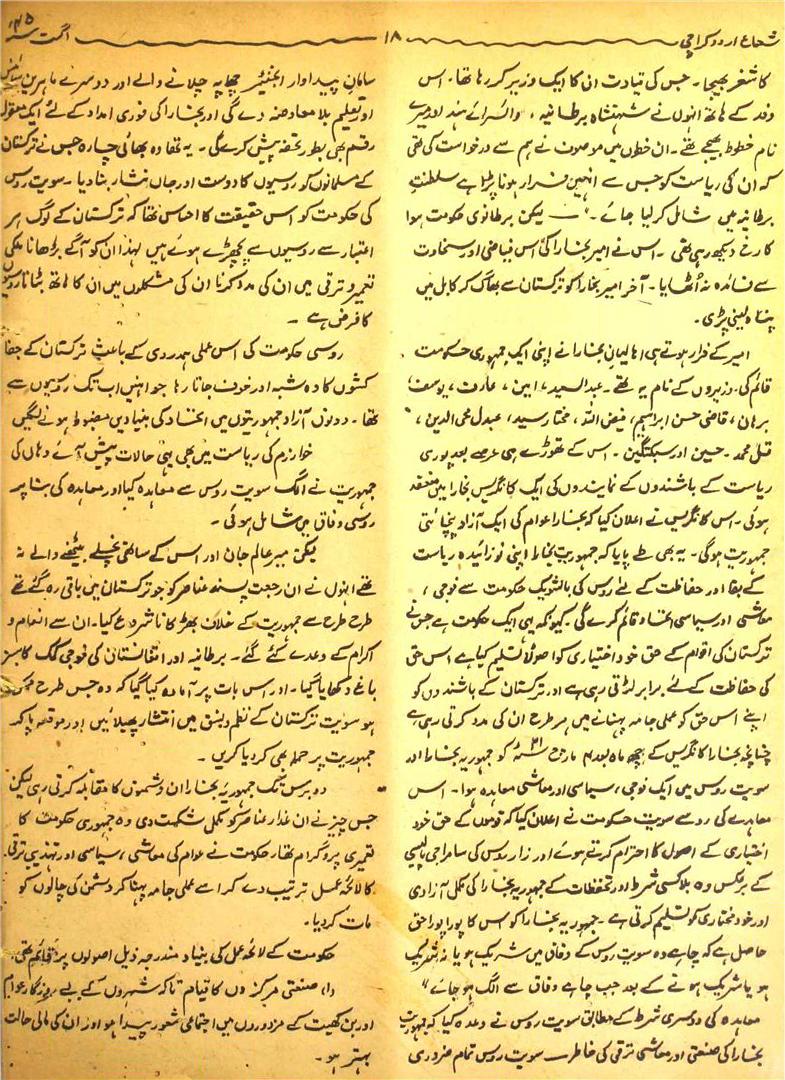 شعاع اردو کراچی
۱۸
اگست ۴۵ء
کاشغر بھیجا۔ جس کی قیادت ان کا ایک وزیر کر رہا تھا۔ اس
وفد کے ہاتھ انہوں نے شہنشاہ برطانیہ، وائسرائے ہند اور میرے
نام خطوط بھیجے تھے۔ ان خطوں میں موصوف نے ہم سے درخواست کی تھی
کہ ان کی ریاست کو جس سے انہیں فرار ہونا پڑا ہے سلطنتِ
برطانیہ میں شامل کر لیا جائے۔" — لیکن برطانوی حکومت ہوا
کا رخ دیکھ رہی تھی۔ اس نے امیر بخارا کی اس فیاضی اور سخاوت
سے فائدہ نہ اُٹھایا۔ آخر امیر بخارا کو ترکستان سے بھاگ کر کابل میں
پناہ لینی پڑی۔
امیر کے فرار ہوتے ہی اہالیانِ بخارا نے اپنی ایک جمہوری حکومت
قائم کی۔ وزیروں کے نام یہ تھے۔ عبدالسید، امین، عارف، یوسف،
برہان، قاضی حسن ابراہیم، فیض اللہ، مختار سید، عبدل محی الدین،
قتل محمد۔ حسین اور سبکتگین۔ اس کے تھوڑے ہی عرصے بعد پوری
ریاست کے باشندوں کے نمایندوں کی ایک کانگریس بخارا میں منعقد
ہوئی۔ اس کانگریس نے اعلان کیا کہ بخارا عوام کی ایک آزاد پنچائتی
جمہوریت ہوگی۔ یہ بھی طے پایا کہ جمہوریت بخارا اپنی نوزائیدہ ریاست
کے بقا اور حفاظت کے لئے روس کی بالشویک حکومت سے فوجی،
معاشی اور سیاسی اتحاد قائم کرے گی۔ کیونکہ یہی ایک حکومت ہے جس نے
ترکستان کی اقوام کے حق خود اختیاری کو اصولاً تسلیم کیا ہے اس حق
کی حفاظت کے لئے برابر لڑتی رہی ہے اور ترکستان کے باشندوں کو
اپنے اس حق کو عملی جامہ پہنانے میں ہر طرح ان کی مدد کرتی رہی ہے
چنانچہ بخارا کانگریس کے چھ ماہ بعد ۴ مارچ ۲۱ء کو جمہوریہ بخارا اور
سویت روس میں ایک فوجی، سیاسی اور معاشی معاہدہ ہوا۔ اس
معاہدے کی رو سے سویت حکومت نے اعلان کیا کہ قوموں کے حق خود
اختیاری کے اصول کا احترام کرتے ہوئے اور زارِ روس کی سامراجی پالیسی
کے برعکس وہ بلا کسی شرط اور تحفظات کے جمہوریہ بخارا کی مکمل آزادی
اور خود مختاری کو تسلیم کرتی ہے۔ جمہوریہ بخارا کو اس کا پورا پورا حق
حاصل ہے کہ چاہے وہ سویت روس کے وفاق میں شریک ہو یا نہ شریک
ہو یا شریک ہونے کے بعد جب چاہے وفاق سے الگ ہو جائے"
معاہدہ کی دوسری شرط کے مطابق سویت روس نے وعدہ کیا کہ جمہوریت
بخارا کی صنعتی اور معاشی ترقی کی خاطر سویت روس تمام ضروری
سامانِ پیداوار انجنئیر چھاپہ چلانے والے اور دوسرے ماہرین
اور تعلیم بلا معاوضہ دے گی اور بخارا کی فوری امداد کے لئے ایک معقول
رقم بھی بطور تحفہ پیش کرے گی۔ یہ تھا وہ بھائی چارہ جس نے ترکستان
کے مسلمانوں کو روسیوں کا دوست اور جاں نثار بنا دیا۔ سویت روس
کی حکومت کو اس حقیقت کا احساس تھا کہ ترکستان کے لوگ ہر
اعتبار سے روسیوں سے پچھڑے ہوئے ہیں لہذا ان کو آگے بڑھانا ملکی
تعمیر و ترقی میں ان کی مدد کرنا ان کی مشکلوں میں ان کا ہاتھ بٹانا روسیوں
کا فرض ہے۔
روسی حکومت کی اس عملی ہمدردی کے باعث ترکستان کے جفا
کشوں کا وہ شبہ اور خوف جاتا رہا جو انہیں اب تک روسیوں سے
تھا۔ دونوں آزاد جمہوریتوں میں اتحاد کی بنیادیں مضبوط ہونے لگیں
خوارزم کی ریاست میں بھی یہی حالات پیش آئے وہاں کی
جمہوریت نے الگ سویت روس سے معاہدہ کیا اور معاہدہ کی بنا پر
روسی وفاق میں شامل ہوئی۔
لیکن میر عالم جان اور اس کے ساتھی نچلے بیٹھنے والے نہ
تھے انہوں نے ان رجعت پسند عناصر کو جو ترکستان میں باقی رہ گئے تھے
طرح طرح سے جمہوریت کے خلاف بھڑکانا شروع کیا۔ ان سے انعام و
اکرام کے وعدے کئے گئے۔ برطانیہ اور افغانستان کی فوجی کمک کا سبز
باغ دکھایا گیا۔ اور اس بات پر آمادہ کیا گیا کہ وہ جس طرح ممکن
ہو سویت ترکستان کے نظم و نسق میں انتشار پھیلائیں اور موقعہ پا کر
جمہوریت پر حملہ بھی کر دیا کریں۔
دو برس تک جمہوریہ بخارا ان دشمنوں کا مقابلہ کرتی رہی لیکن
جس چیز نے ان غدار عناصر کو مکمل شکست دی وہ جمہوری حکومت کا
تعمیری پروگرام تھا، حکومت نے عوام کی معاشی، سیاسی اور تہذیبی ترقی
کا لائحۂ عمل ترتیب دے کر اسے عملی جامہ پہنا کر دشمن کی چالوں کو
مات کر دیا۔
حکومت کے لائحہ عمل کی بنیاد مندرجہ ذیل اصولوں پر قائم تھی۔
(۱) صنعتی مرکزوں کا قیام تاکہ شہروں کے بے روزگار عوام
اور بن کھیت کے مزدوروں میں اجتماعی شعور پیدا ہو اور ان کی مالی حالت
بہتر ہو۔